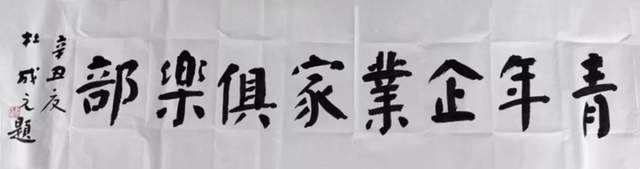 青年企業家俱樂部
辛丑夏
杜成元題